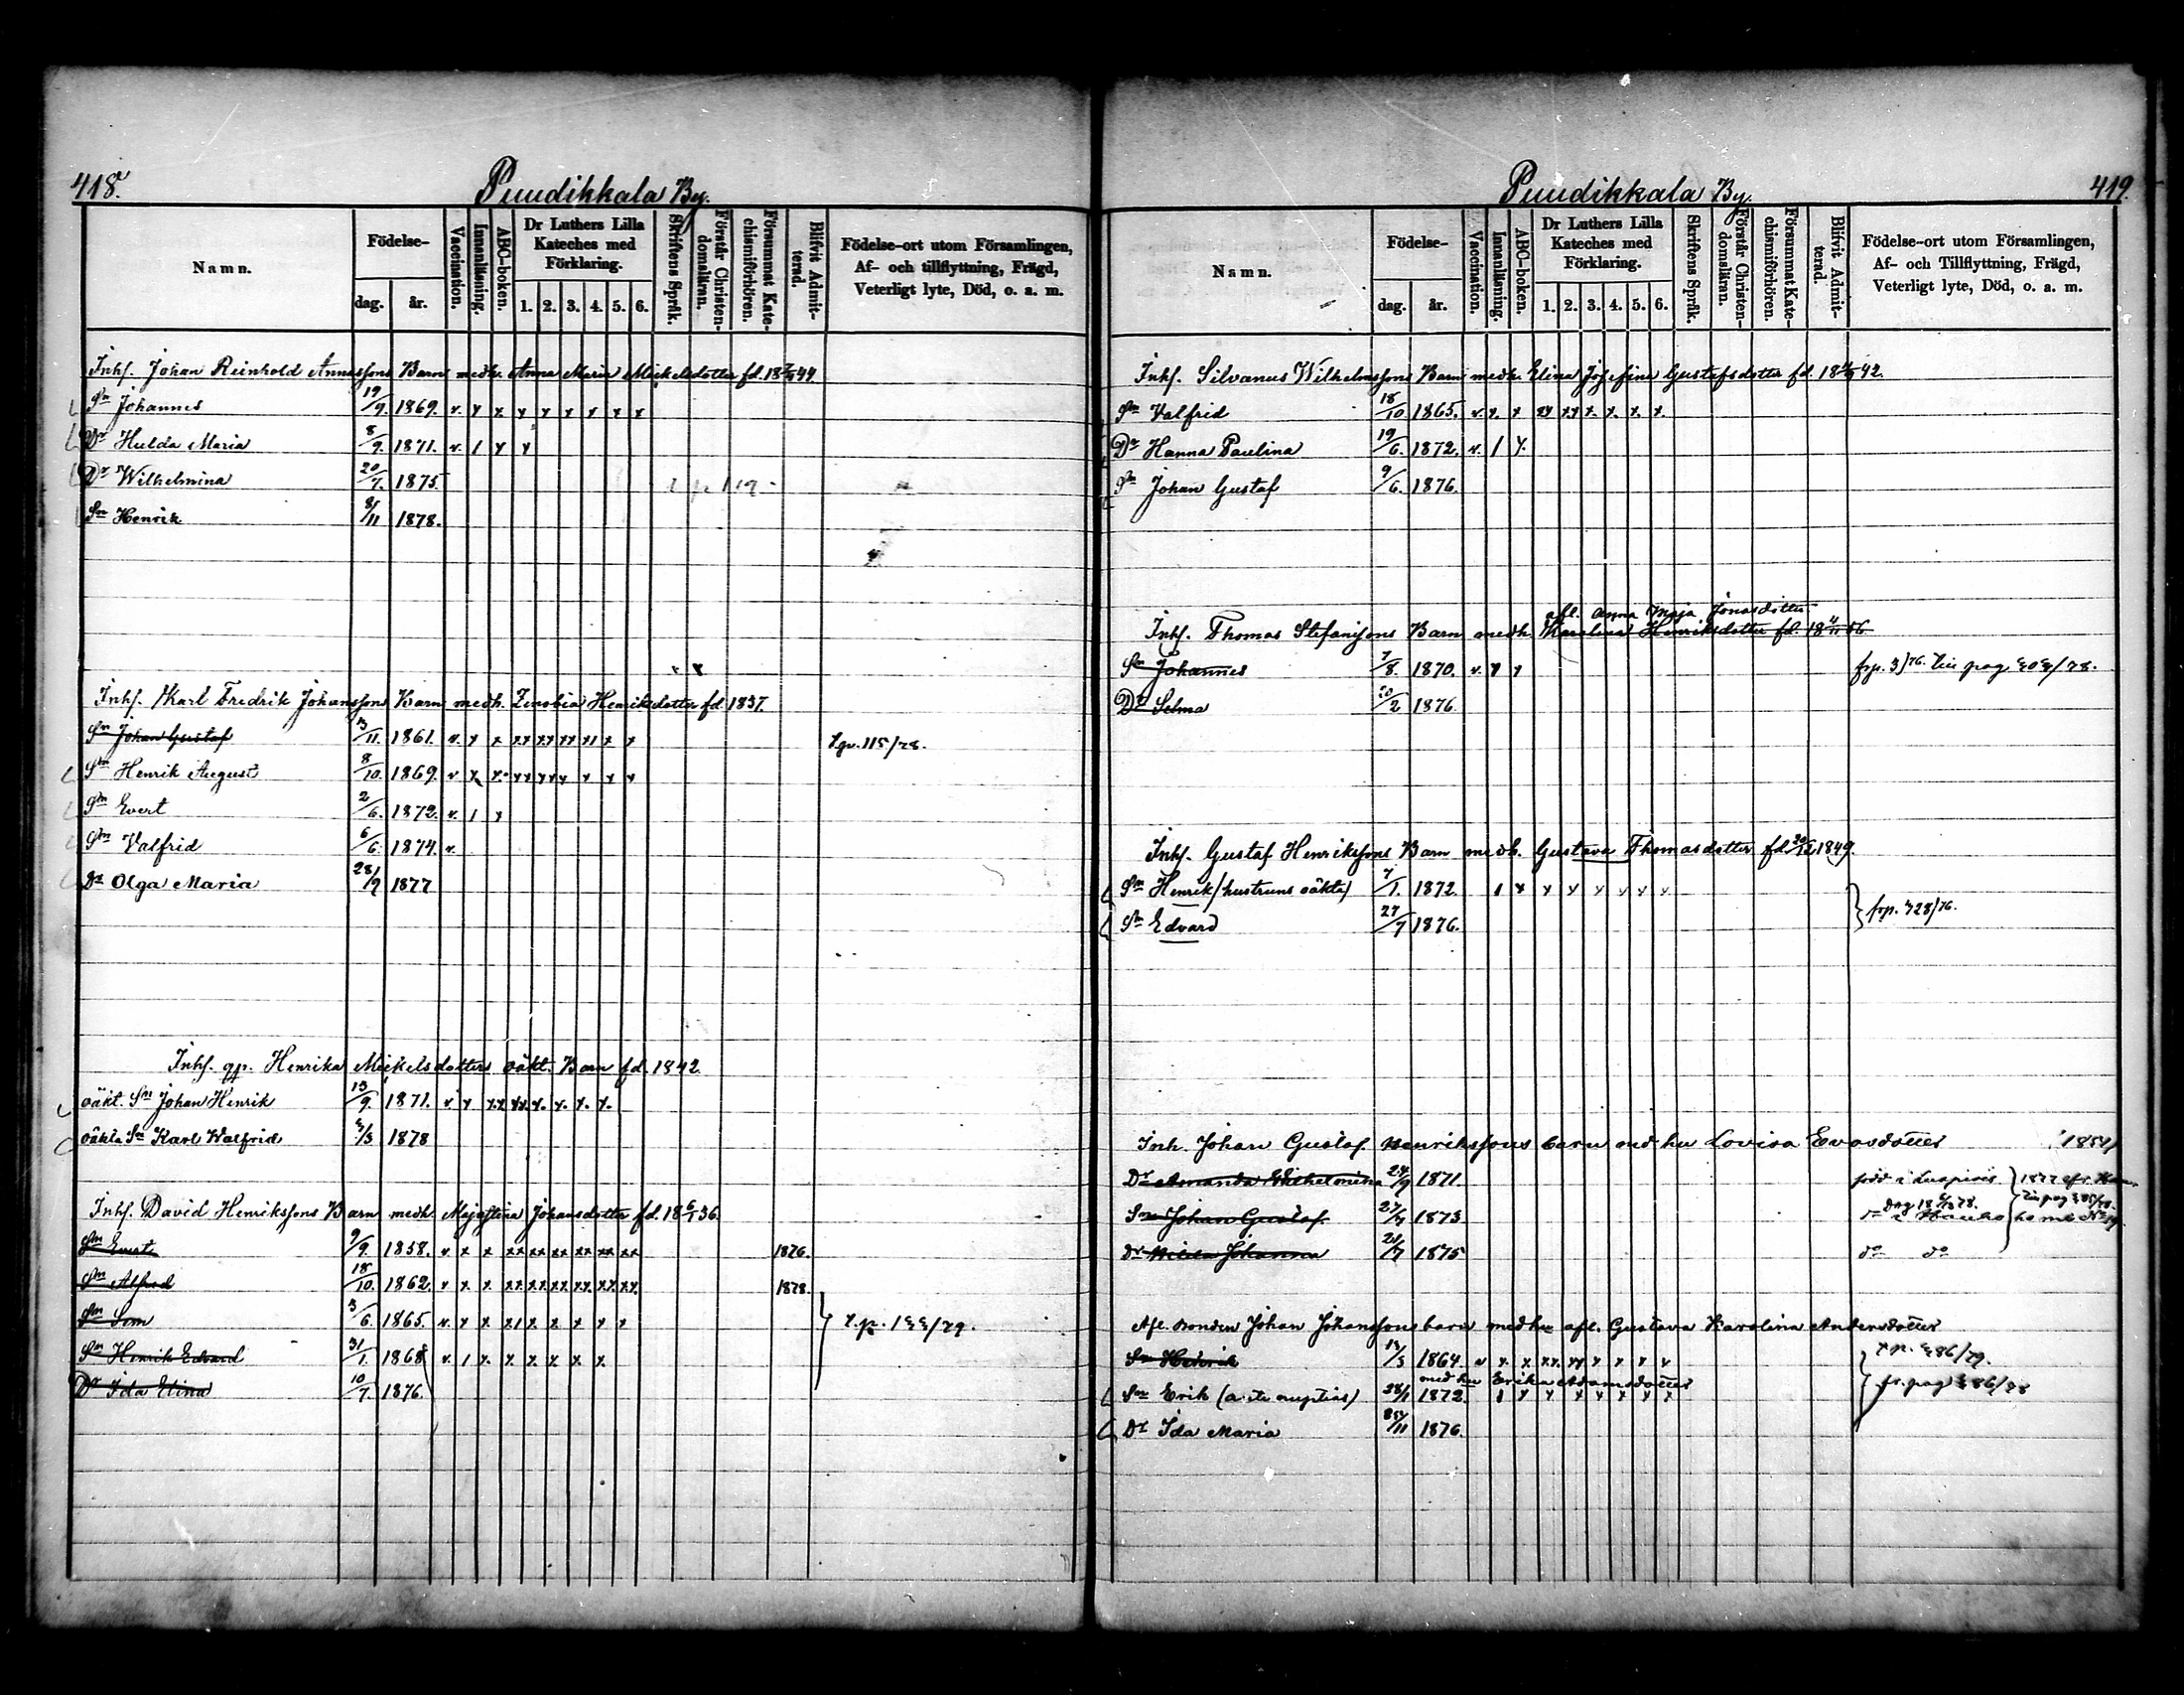 418.
Puudikkala By.
Namn.
Födelse-
dag.
år.
Vaccination.
Innanläsning.
ABC-boken.
Dr Luthers Lilla Kateches med Förklaring.
1. 2. 3. 4. 5. 6.
Skriftens Språk.
Förstår Christen-domsläran.
Försummat Kate-chismiförhören.
Blifvit Admit-terad.
Födelse-ort utom Församlingen,
Af- och tillflyttning, Frägd,
Veterligt lyte, Död, o. a. m.
Inhs. Johan Reinhold Annassons Barn medh. Anna Maria Mickelsdotter fd. 18 44
Sn Johannes 19/9. 1869. v. x x x x x x x x
Dr Hulda Maria 8/9. 1871. v. 1 x x
Dr Wilhelmina 20/7. 1875.
Sn Henrik 8/11 1878.
Inhs. Karl Fredrik Johanssons Barn medh. Zenobia Henriksdotter fd. 1837.
Sn Johan Gustaf 3/11. 1861. v. x x xx xx xx x1 x x
Sn Henrik August 8/10. 1869. v x x xx xx x x x
Sn Evert 2/6. 1872. v. 1 x
Sn Valfrid 6/6. 1874. v.
Dr Olga Maria 28/9 1877
Inhs. qp. Henrika Mickelsdotters oäkt. Barn fd. 1842.
oäkt. Sn Johan Henrik 13/9. 1871. v x xx xx x. x. x. x.
oäkta Sn Karl Walfrid /3 1878
Inhs. David Henrikssons Barn medh. Majastina Johansdotter fd. 18 36.
Sn 9/9. 1858. v x x xx xx xx xx xx xx 1876.
Sn Alfred 18/10. 1862. v x x xx xx xx xx xx xx 1878.
Sn Sem 3/6. 1865. v. x x x1 x x x x x
Sn Henrik Edvard 31/1. 1868 v. 1 x. x x x x x
Dr Ida Elina 10/7. 1876.
419.
Puudikkala By.
Namn.
Födelse-
dag.
år.
Vaccination.
Innanläsning.
ABC-boken.
Dr Luthers Lilla Kateches med Förklaring.
1. 2. 3. 4. 5. 6.
Skriftens Språk.
Förstår Christen-domsläran.
Försummat Kate-chismiförhören.
Blifvit Admit-terad.
Födelse-ort utom Församlingen,
Af- och Tillflyttning, Frägd,
Veterligt lyte, Död, o. a. m.
Inhs. Silvanus Wilhelmssons Barn medh. Elina Josefina Gustafsdotter fd. 18 42.
Sn Valfrid 18/10 1865. v. x. x xx xx x. x. x. x.
Dr Hanna Paulina 19/6. 1872. v. 1 x.
Sn Johan Gustaf 9/6. 1876.
afl. Anna Maja Jonasdotter
Inhs. Thomas Stefanssons Barn medh. Karolina Henriksdotter fd. 18 56
Sn Johannes 7/8. 1870. v. x x
Dr Selma 20/2 1876.
Inhs. Gustaf Henrikssons Barn medh. Gustava Thomasdotter fd. 30/12 1849.
Sn Henrik (hustruns oäkta) 7/1. 1872. 1 x x x x x x x
Sn Edvard 27/7 1876. frp. 328/76.
Inh. Johan Gustaf Henrikssons barn med hu Lovisa Evasdotter
Dr Amanda Wilhelmina 24/9 1871.
Sn Johan Gustaf 1873
Dr Johanna 1875 do do
Afl. bonden Johan Johanssons barn med hu afl. Gustava Karolina Andersdotter
Sn Hedrik /3 1864 v x. x xx. xx x x x x
med hu Erika Adamsdotter
Sn Erik (ante nuptias) 28/1 1872. 1 x x x x x x x
Dr Ida Maria /11 1876.